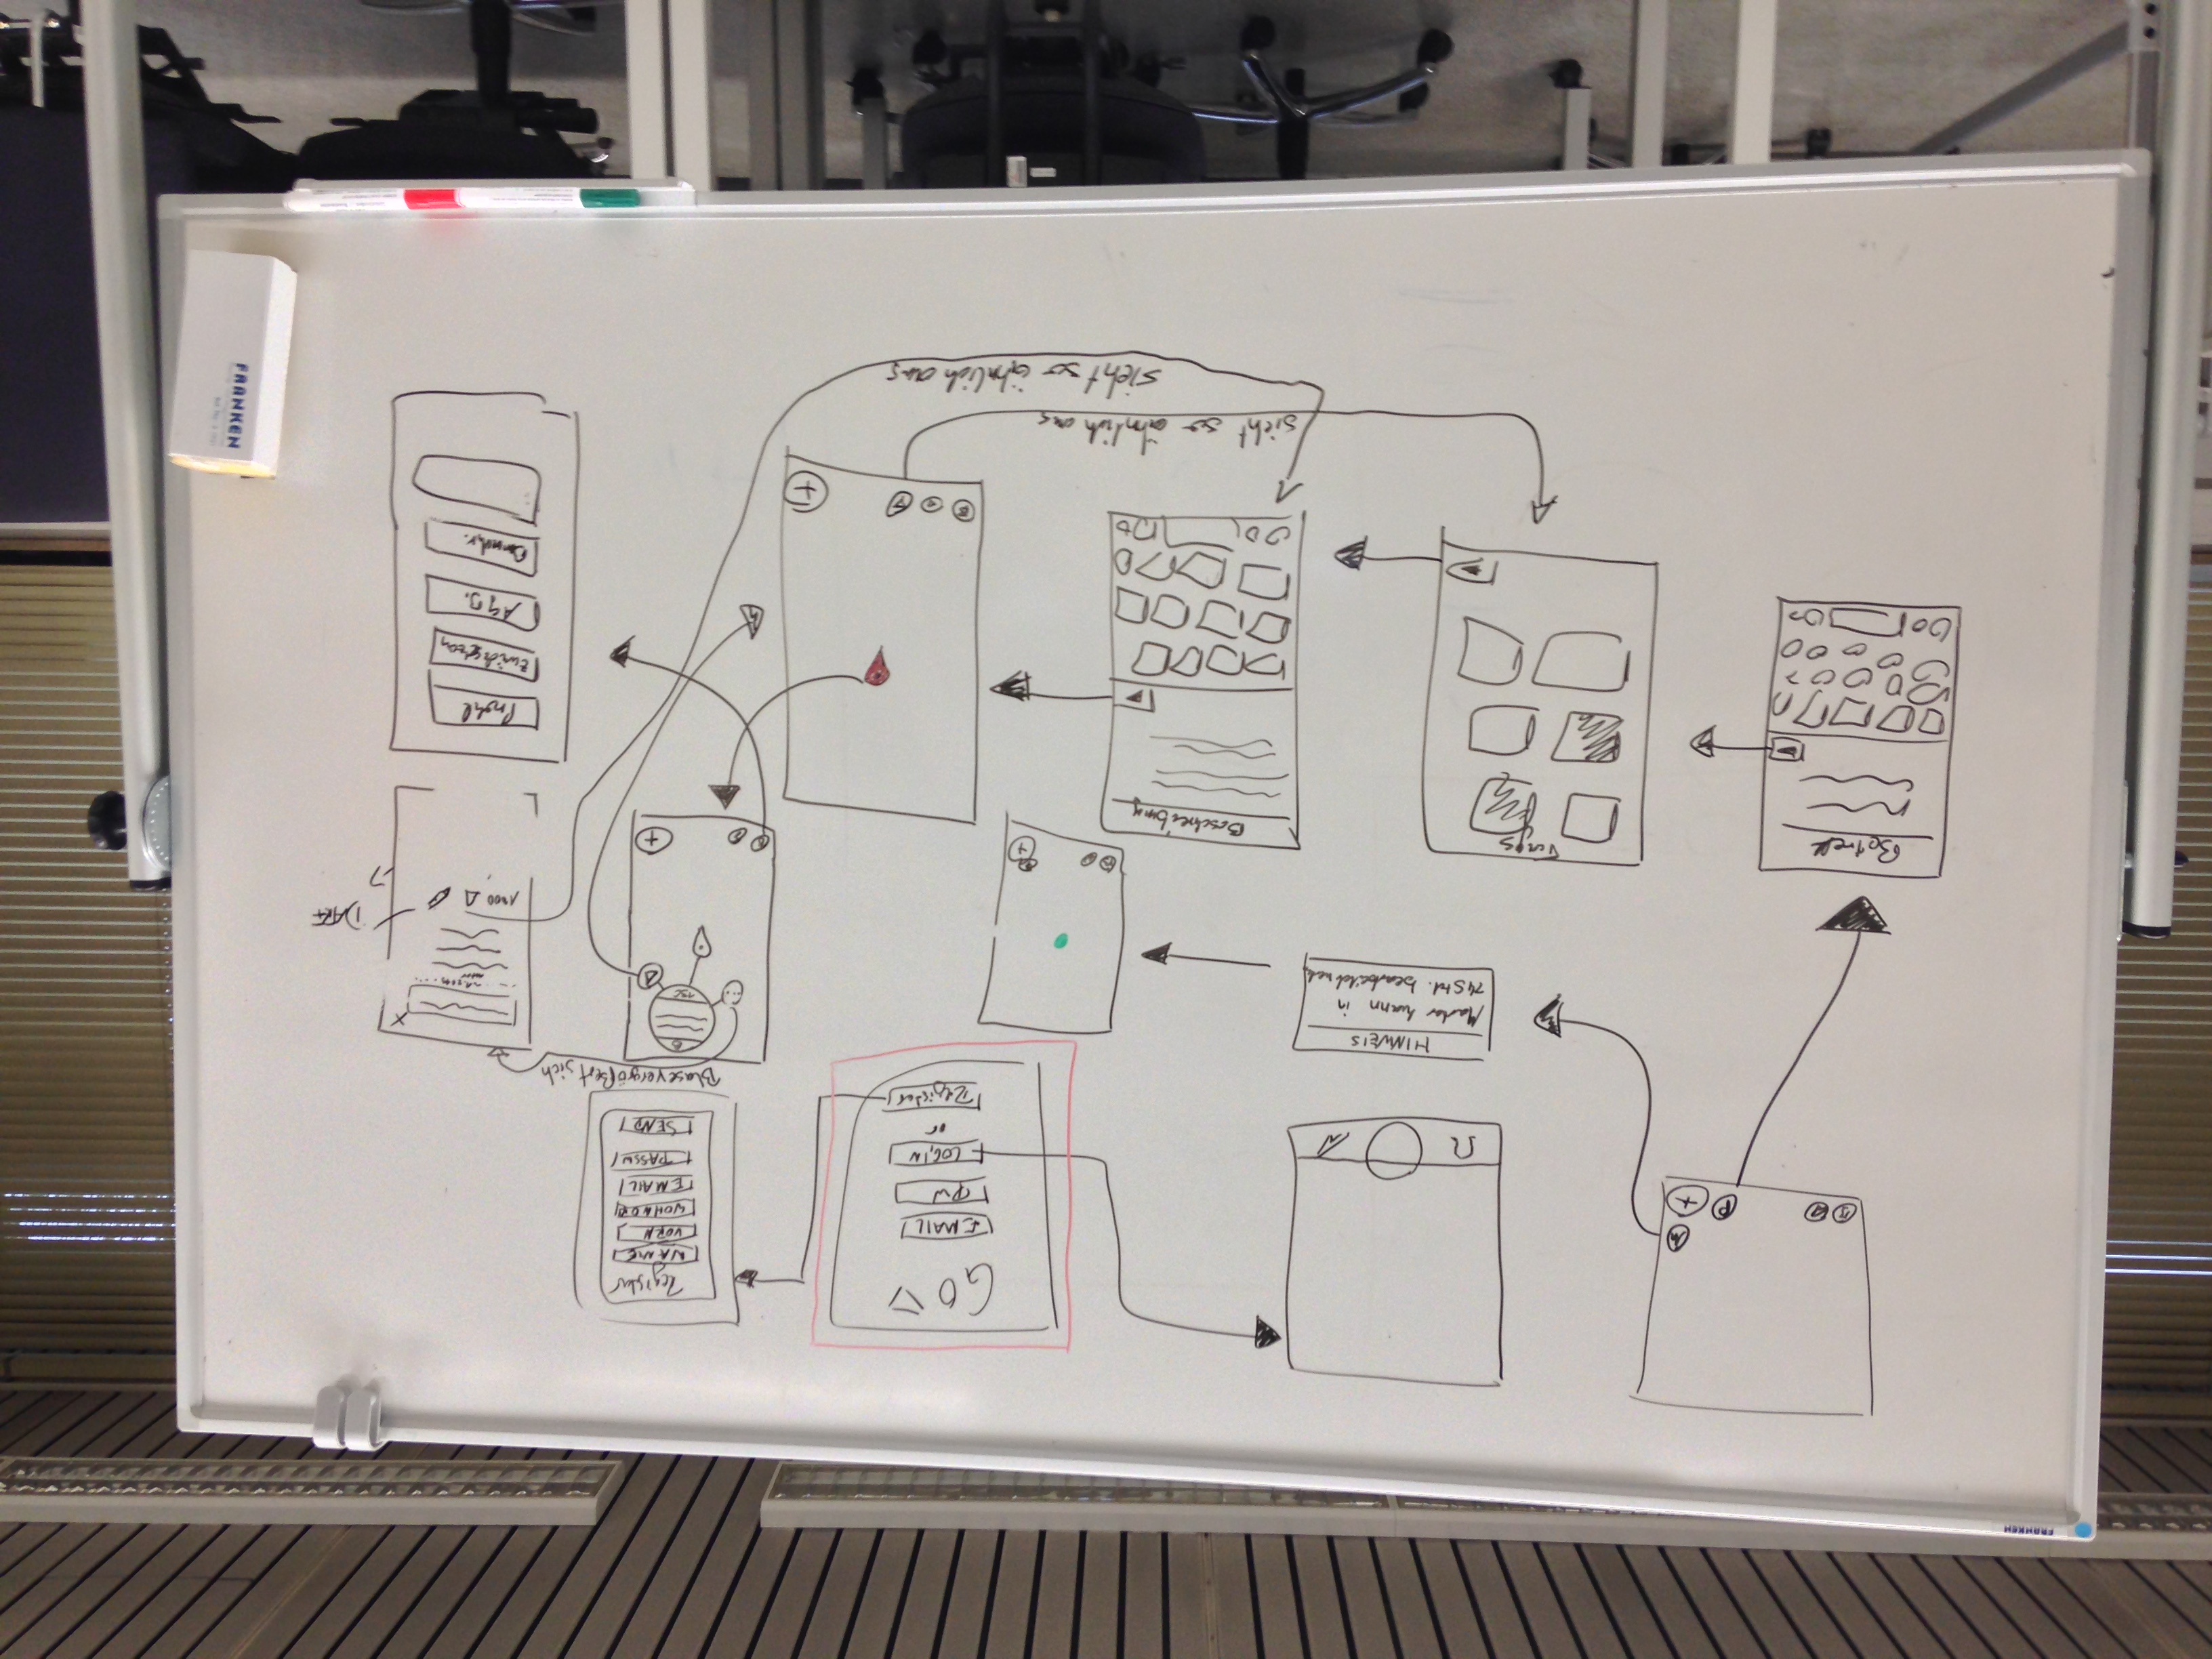 FRANKEN
P
+
M
GO
EMAIL
PW
LOGIN
or
Register
Register
NAME
VORN
WOHNOR
EMAIL
PASSW
SEND
HINWEIS
Marker kann in
24Std. bearbeitet werden
+
Blase vergrößert sich
+
1000
Betreff
Tags
Beschreibung
+
Profil
AGB.
sieht so ähnlich aus
sieht so ähnlich aus
FRANKEN